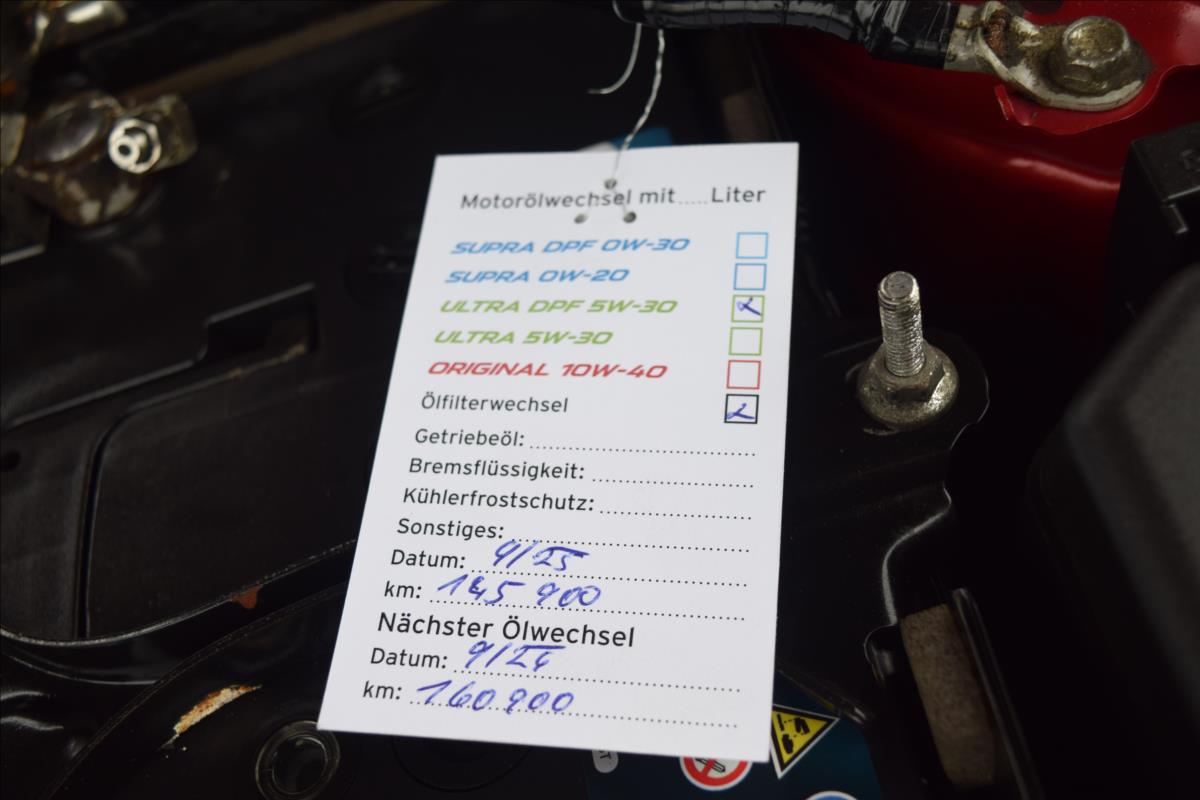 Motorölwechsel mit.....Liter
SUPRA DPF 0W-30
SUPRA 0W-20
ULTRA DPF 5W-30
ULTRA 5W-30
ORIGINAL 10W-40
Ölfilterwechsel
Getriebeöl:
Bremsflüssigkeit:
Kühlerfrostschutz:
Sonstiges:
Datum: 9/25
km: 145 900
Nächster Ölwechsel
Datum: 9/26
km: 160 900